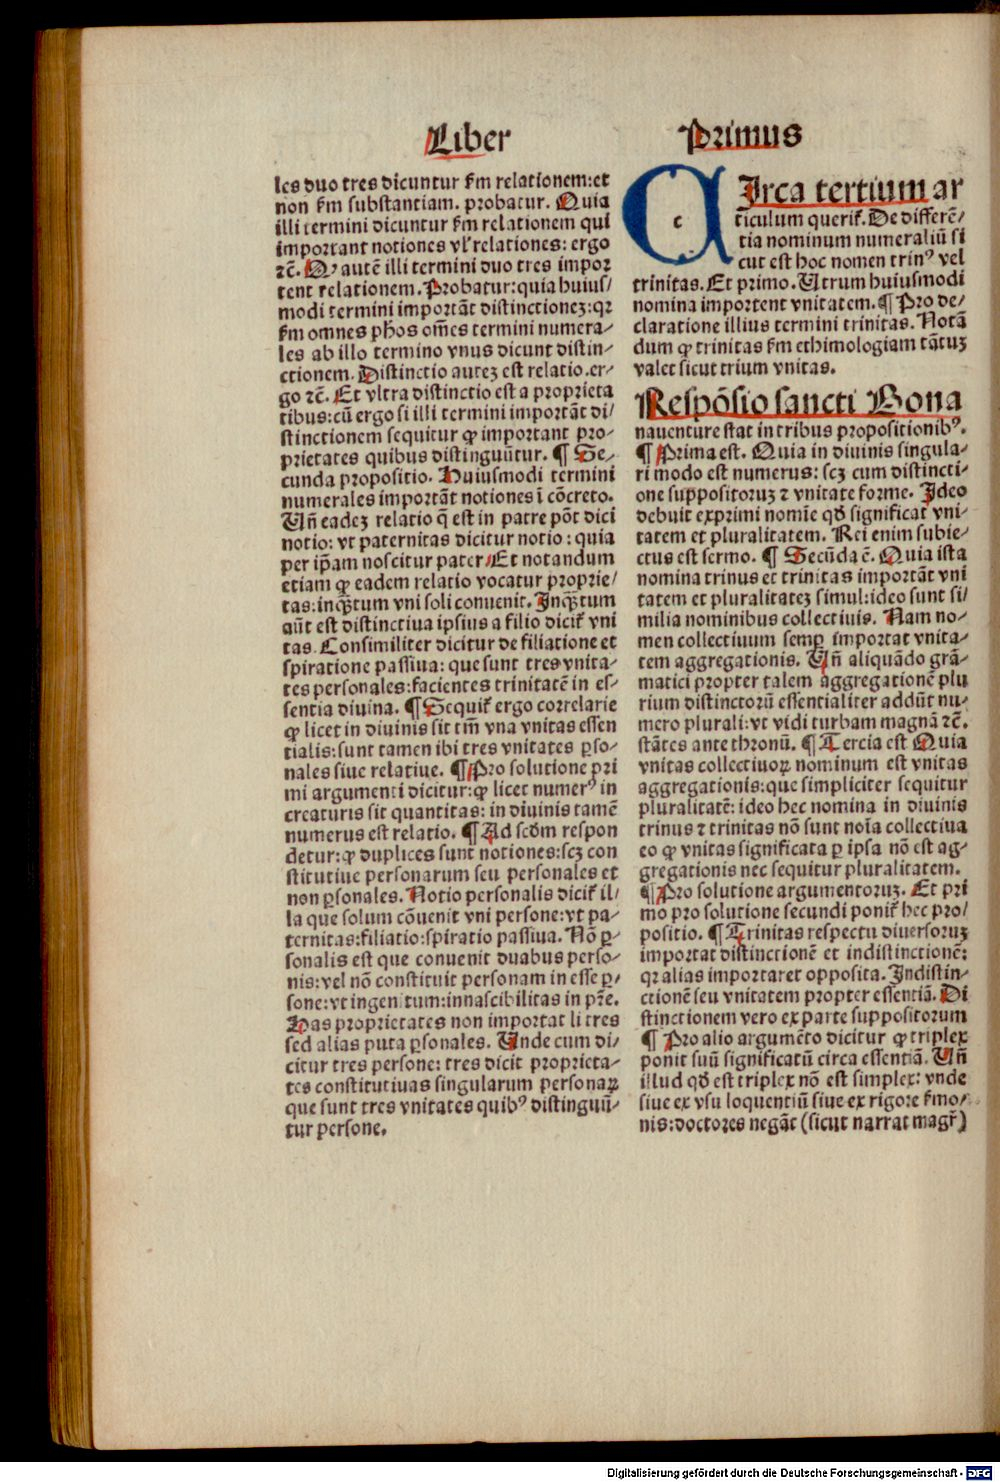 Liber
les duo tres dicuntur ẜm relationem: et
non ẜm substantiam. probatur. Quia
illi termini dicuntur ẜm relationem qui
important notiones vl' relationes: ergo
⁊c̄. Qꝛ autē illi termini duo tres impor
tent relationem. Probatur: quia huius/
modi termini importāt distinctionez: qꝛ
ẜm omnes ph̄os om̄es termini numera⸗
les ab illo termino vnus dicunt distin⸗
ctionem. Distinctio autez est relatio. er⸗
go ⁊c̄. Et vltra distinctio est a proprieta
tibus: cū ergo si illi termini importāt di/
stinctionem sequitur ꝙ important pro⸗
prietates quibus distinguūtur. ¶ Se⸗
cunda propositio. Huiusmodi termini
numerales importāt notiones ī cōcreto.
Vñ eadez relatio q̄ est in patre pōt dici
notio: vt paternitas dicitur notio: quia
per ip̄am noscitur pater/ Et notandum
etiam ꝙ eadem relatio vocatur proprie/
tas: inqͣ̄tum vni soli conuenit. Inqͣ̄tum
aūt est distinctiua ipsius a filio dicit᷑ vni
tas. Consimiliter dicitur de filiatione et
spiratione passiua: que sunt tres vnita⸗
tes personales: facientes trinitatē in es⸗
sentia diuina. ¶ Sequit᷑ ergo correlarie
ꝙ licet in diuinis sit tm̄ vna vnitas essen
tialis: sunt tamen ibi tres vnitates ꝑso⸗
nales siue relatiue. ¶ Pro solutione pri
mi argumenti dicitur: ꝙ licet numerꝰ in
creaturis sit quantitas: in diuinis tamē
numerus est relatio. ¶ Ad scd̄m respon
detur: ꝙ duplices sunt notiones: scz con
stitutiue personarum seu personales et
non ꝑsonales. Notio personalis dicit᷑ il/
la que solum cōuenit vni persone: vt pa⸗
ternitas: filiatio: spiratio passiua. Nō ꝑ⸗
sonalis est que conuenit duabus perso⸗
nis: vel nō constituit personam in esse ꝑ⸗
sone: vt ingenitum: innascibilitas in pr̄e.
Has proprietates non importat li tres
sed alias puta ꝑsonales. Unde cum di/
citur tres persone: tres dicit proprieta⸗
tes constitutiuas singularum personaꝝ
que sunt tres vnitates quibꝰ distinguū⸗
tur persone.
Primus
CIrca tertium ar
ticulum querit᷑. De differē/
tia nominum numeraliū si
cut est hoc nomen trinꝰ vel
trinitas. Et primo. Utrum huiusmodi
nomina importent vnitatem. ¶ Pro de/
claratione illius termini trinitas. Notā
dum ꝙ trinitas ẜm ethimologiam tātuz
valet sicut trium vnitas.
Respōsio sancti Bona
nauenture stat in tribus propositionibꝰ.
¶ Prima est. Quia in diuinis singula⸗
ri modo est numerus: scz cum distincti⸗
one suppositoruz ⁊ vnitate forme. Ideo
debuit exprimi nomīe qd̄ significat vni⸗
tatem et pluralitatem. Rei enim subie⸗
ctus est sermo. ¶ Secūda ē. Quia ista
nomina trinus et trinitas importāt vni
tatem et pluralitatez simul: ideo sunt si/
milia nominibus collectiuis. Nam no⸗
men collectiuum semꝑ importat vnita⸗
tem aggregationis. Vñ aliquādo grā⸗
matici propter talem aggregationē plu
rium distinctorū essentialiter addūt nu⸗
mero plurali: vt vidi turbam magnā ⁊c̄.
stātes ante thronū. ¶ Tercia est Quia
vnitas collectiuoꝝ nominum est vnitas
aggregationis: que simpliciter sequitur
pluralitatē: ideo hec nomina in diuinis
trinus ⁊ trinitas nō sunt noīa collectiua
eo ꝙ vnitas significata ꝑ ipsa nō est ag⸗
gregationis nec sequitur pluralitatem.
¶ Pro solutione argumentoruz. Et pri
mo pro solutione secundi ponit᷑ hec pro/
positio. ¶ Trinitas respectu diuersoruz
importat distinctionē et indistinctionē:
qꝛ alias importaret opposita. Indistin⸗
ctionē seu vnitatem propter essentiā. Di
stinctionem vero ex parte suppositorum
¶ Pro alio argumēto dicitur ꝙ triplex
ponit suū significatū circa essentiā. Vñ
illud qd̄ est triplex nō est simplex: vnde
siue ex vsu loquentiū siue ex rigore ẜmo⸗
nis: doctores negāt (sicut narrat magr̄)
Digitalisierung gefördert durch die Deutsche Forschungsgemeinschaft - DFG